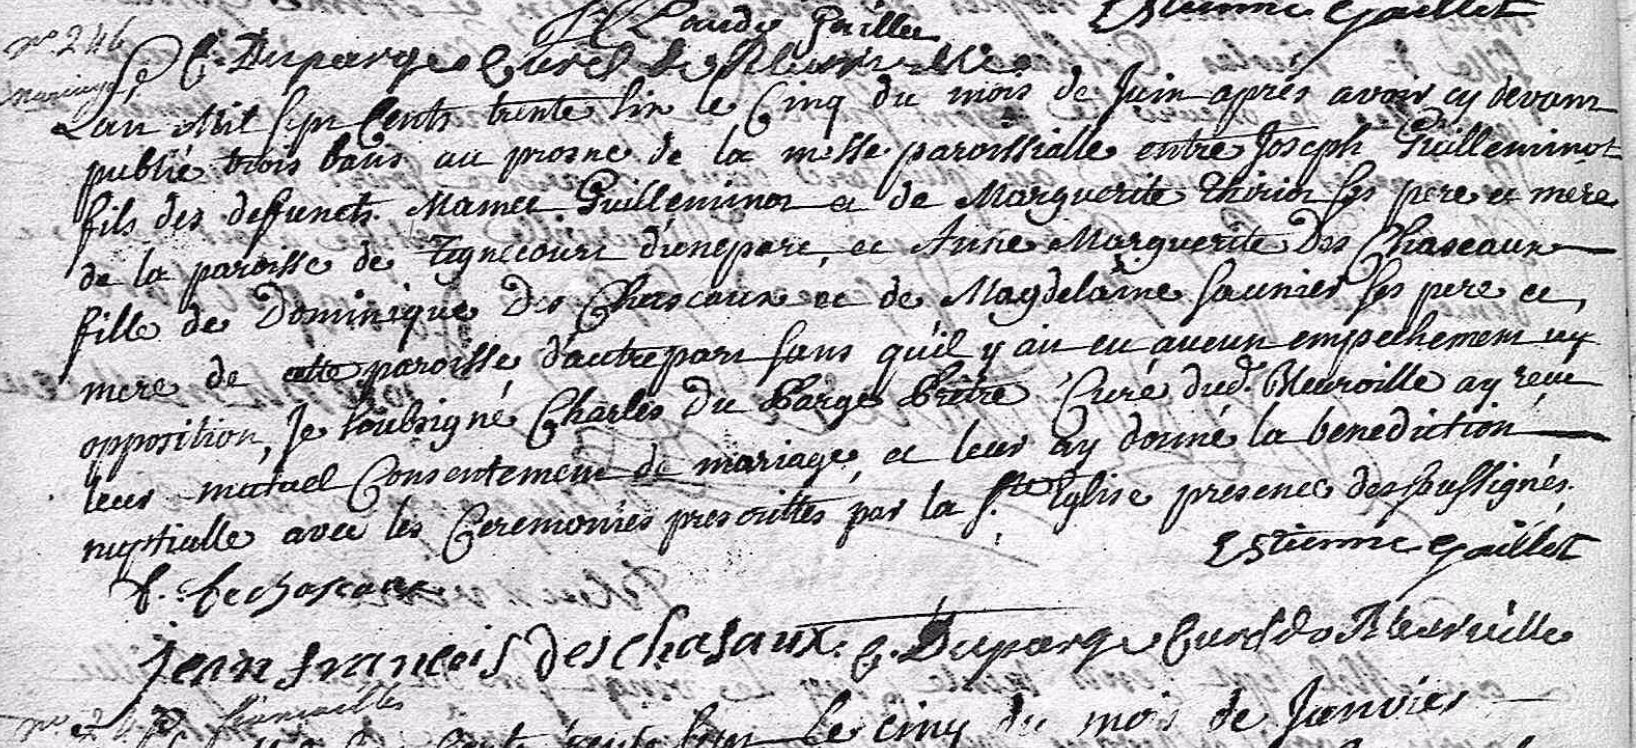 Claude Grillet Estienne Gaillet
no. 246 C. Duparge Curé de Bleurville
Mariage
Lan Mil Sept Cents trente six le Cinq du mois de Juin aprés avoir cy devant
publié trois bans au prosne de la messe paroissialle entre Joseph Guilleminot
fils des deffuncts Mamet Guilleminot et de Marguerite Thirion ses pere et mere
de la paroisse de Tignecourt d'unepart, et Anne Marguerite Des Chaseaux
fille de Dominique Des Chaseaux et de Magdelaine Saunier ses pere et
mere de cette paroisse d'autrepart sans qu'il y ait eu aucun empechement ny
opposition, Je soubsigné Charles Du Parge Prêtre Curé dud. Bleurville ay receu
leur mutuel Consentement de mariage, et leur ay donné la benediction
nuptialle avec les Ceremonies prescrittes par la Ste Eglise presence des soussignés.
Estienne Gaillet
f. dechaseaux
jean francois des chasaux. C. Duparge Curé de Bleurville
fiancailles
le cinq du mois de Janvier